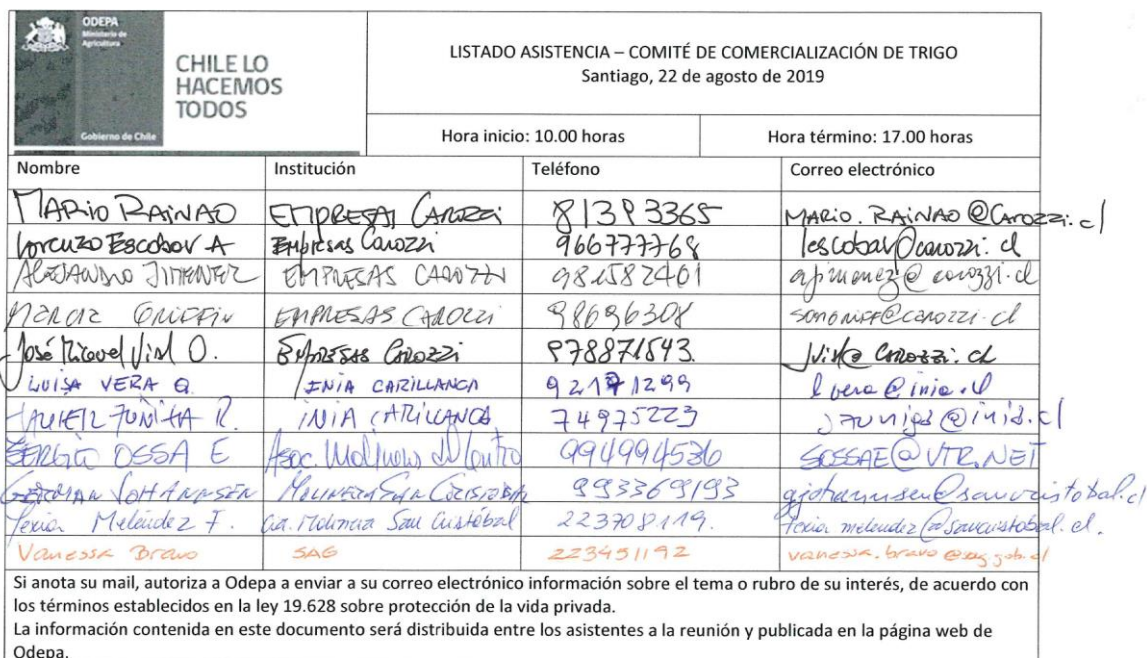 ODEPA
Ministerio de
Agricultura
CHILE LO
HACEMOS
TODOS
Gobierno de Chile
LISTADO ASISTENCIA – COMITÉ DE COMERCIALIZACIÓN DE TRIGO
Santiago, 22 de agosto de 2019
Hora inicio: 10.00 horas Hora término: 17.00 horas
Nombre Institución Teléfono Correo electrónico
MARIO RAINAO EMPRESAS CAROZZI 81393365 MARIO.RAINAO@Carozzi.cl
Lorenzo Escobar A Empresas Carozzi 966777768 lescobar@carozzi.cl
ALEJANDRO JIMENEZ EMPRESAS CAROZZI 981582401 ajimenez@carozzi.cl
EMPRESAS CAROZZI 98696308
José Miguel Vial O. EMPRESAS CAROZZI 978871543.
LUISA VERA Q INIA CARILLANCA 92171299 lvera@inia.cl
JAVIER ZUÑIGA R. INIA CARILLANCA 74975223 jzuniga@inia.cl
SERGIO OSSA E Asoc. Molineros del Centro 994994536 SOSSAE@VTR.NET
GERMAN JOHANNSEN MOLINERA SAN CRISTOBAL 993369193 gjohannsen@sancristobal.cl
Meléndez F. Cia. Molinera San Cristóbal 223708119.
Vanessa Bravo SAG 223451192 vanessa.bravo@sag.gob.cl
Si anota su mail, autoriza a Odepa a enviar a su correo electrónico información sobre el tema o rubro de su interés, de acuerdo con
los términos establecidos en la ley 19.628 sobre protección de la vida privada.
La información contenida en este documento será distribuida entre los asistentes a la reunión y publicada en la página web de
Odepa.